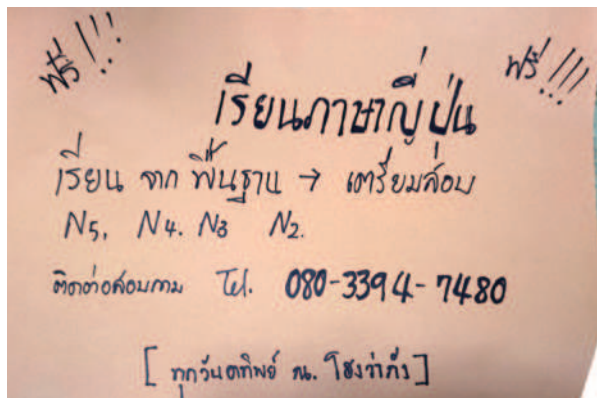 ฟรี!!! ฟรี!!!
เรียนภาษาญี่ปุ่น
เรียน จาก พื้นฐาน → เตรียมสอบ
N5, N4. N3 N2.
ติดต่อสอบถาม Tel. 080-3394-7480
[ ทุกวันอาทิตย์ ณ.